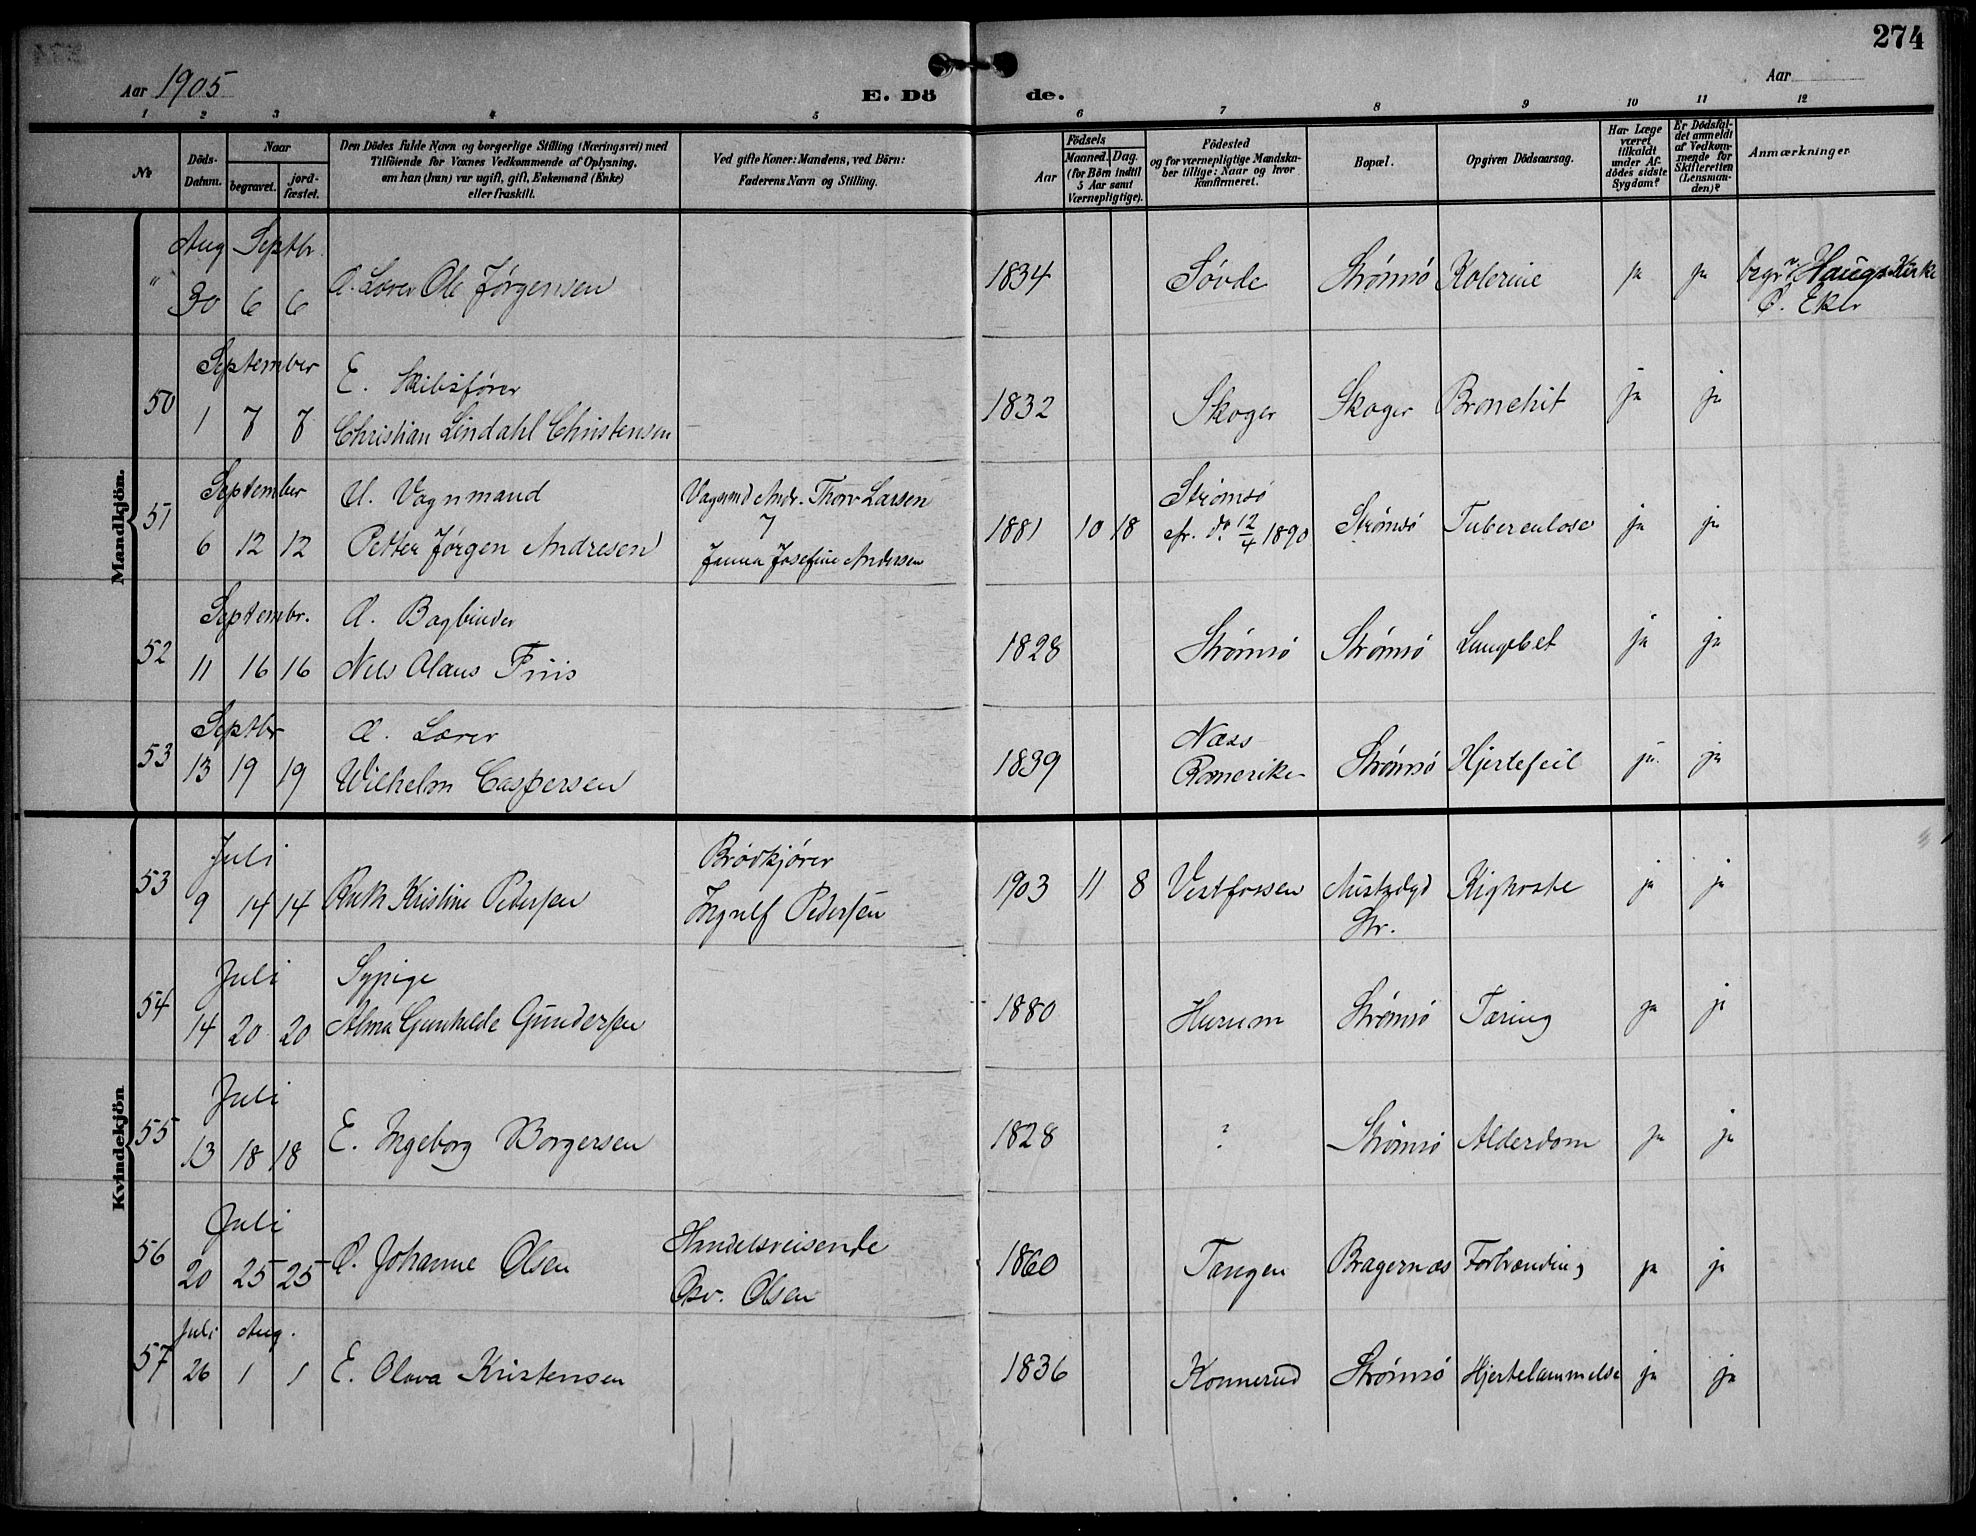 274
Aar 1905
Aar
E. Dö
de.
1 2 3 4 5 6 7 8 9 10 11 12
No
Döds-Datum.
Naar
begravet.
jord-fæstet.
Den Dödes fulde Navn og borgerlige Stilling (Næringsvei) med
Tilföiende for Voxnes Vedkommende af Oplysning,
om han (hun) var ugift, gift, Enkemand (Enke)
eller fraskilt.
Ved gifte Koner: Mandens, ved Börn:
Faderens Navn og Stilling.
Födsels
Aar
Maaned.
Dag.
(for Börn indtil
5 Aar samt
Værnepligtige).
Födested
og for værnepligtige Mandska-
ber tillige: Naar og hvor
konfirmeret.
Bopæl.
Opgiven Dödsaarsag.
Har Læge
været
tilkaldt
under Af-
dödes sidste
Sygdom?
Er Dödsfal-
det anmeldt
af Vedkom-
mende for
Skifteretten
(Lensman-
den)?
Anmærkninger.
Mandkjön.
Aug Septbr.
" 30 6 6 Lærer Ole Jørgensen 1834 Søvde Strømsø Kolerine ja ja begr. Haugs Kirke
Ø. Eker
September E. Skibsfører
50 1 7 7 Christian Lindahl Christensen 1832 Skoger Skoger Bronchit ja ja
September U. Vognmand Vognmd Andr. Thorv Larsen Strømsø
51 6 12 12 Petter Jørgen Andresen Janna Josefine Andersen 1881 10 18 cfr. do 12/4 1890 Strømsø Tuberculose ja ja
Septembr. Bogbinder
52 11 16 16 Nils Olaus Friis 1828 Strømsø Strømsø Lungebet ja ja
Septbr Lærer Næss
53 13 19 19 Wilhelm Caspersen 1839 Romerike Strømsø Hjertefeil ja ja
Kvindekjön
Juli Brødkjører
53 9 14 14 Ruth Kristine Pedersen Ingulf Pedersen 1903 11 8 Vestfossen Kighoste ja ja
Str.
Juli Sypige
54 14 20 20 Alma Gunhilde Gundersen 1880 Hurum Strømsø Tæring ja ja
Juli
55 13 18 18 E. Ingeborg Borgersen 1828 ? Strømsø Alderdom ja ja
Juli Handelsreisende
56 20 25 25 Johanne Olsen Osv. Olsen 1860 Tangen Bragernæs Forbrænding ja ja
Juli Aug.
57 26 1 1 E. Olava Kristensen 1836 Konnerud Strømsø Hjertelammelse ja ja